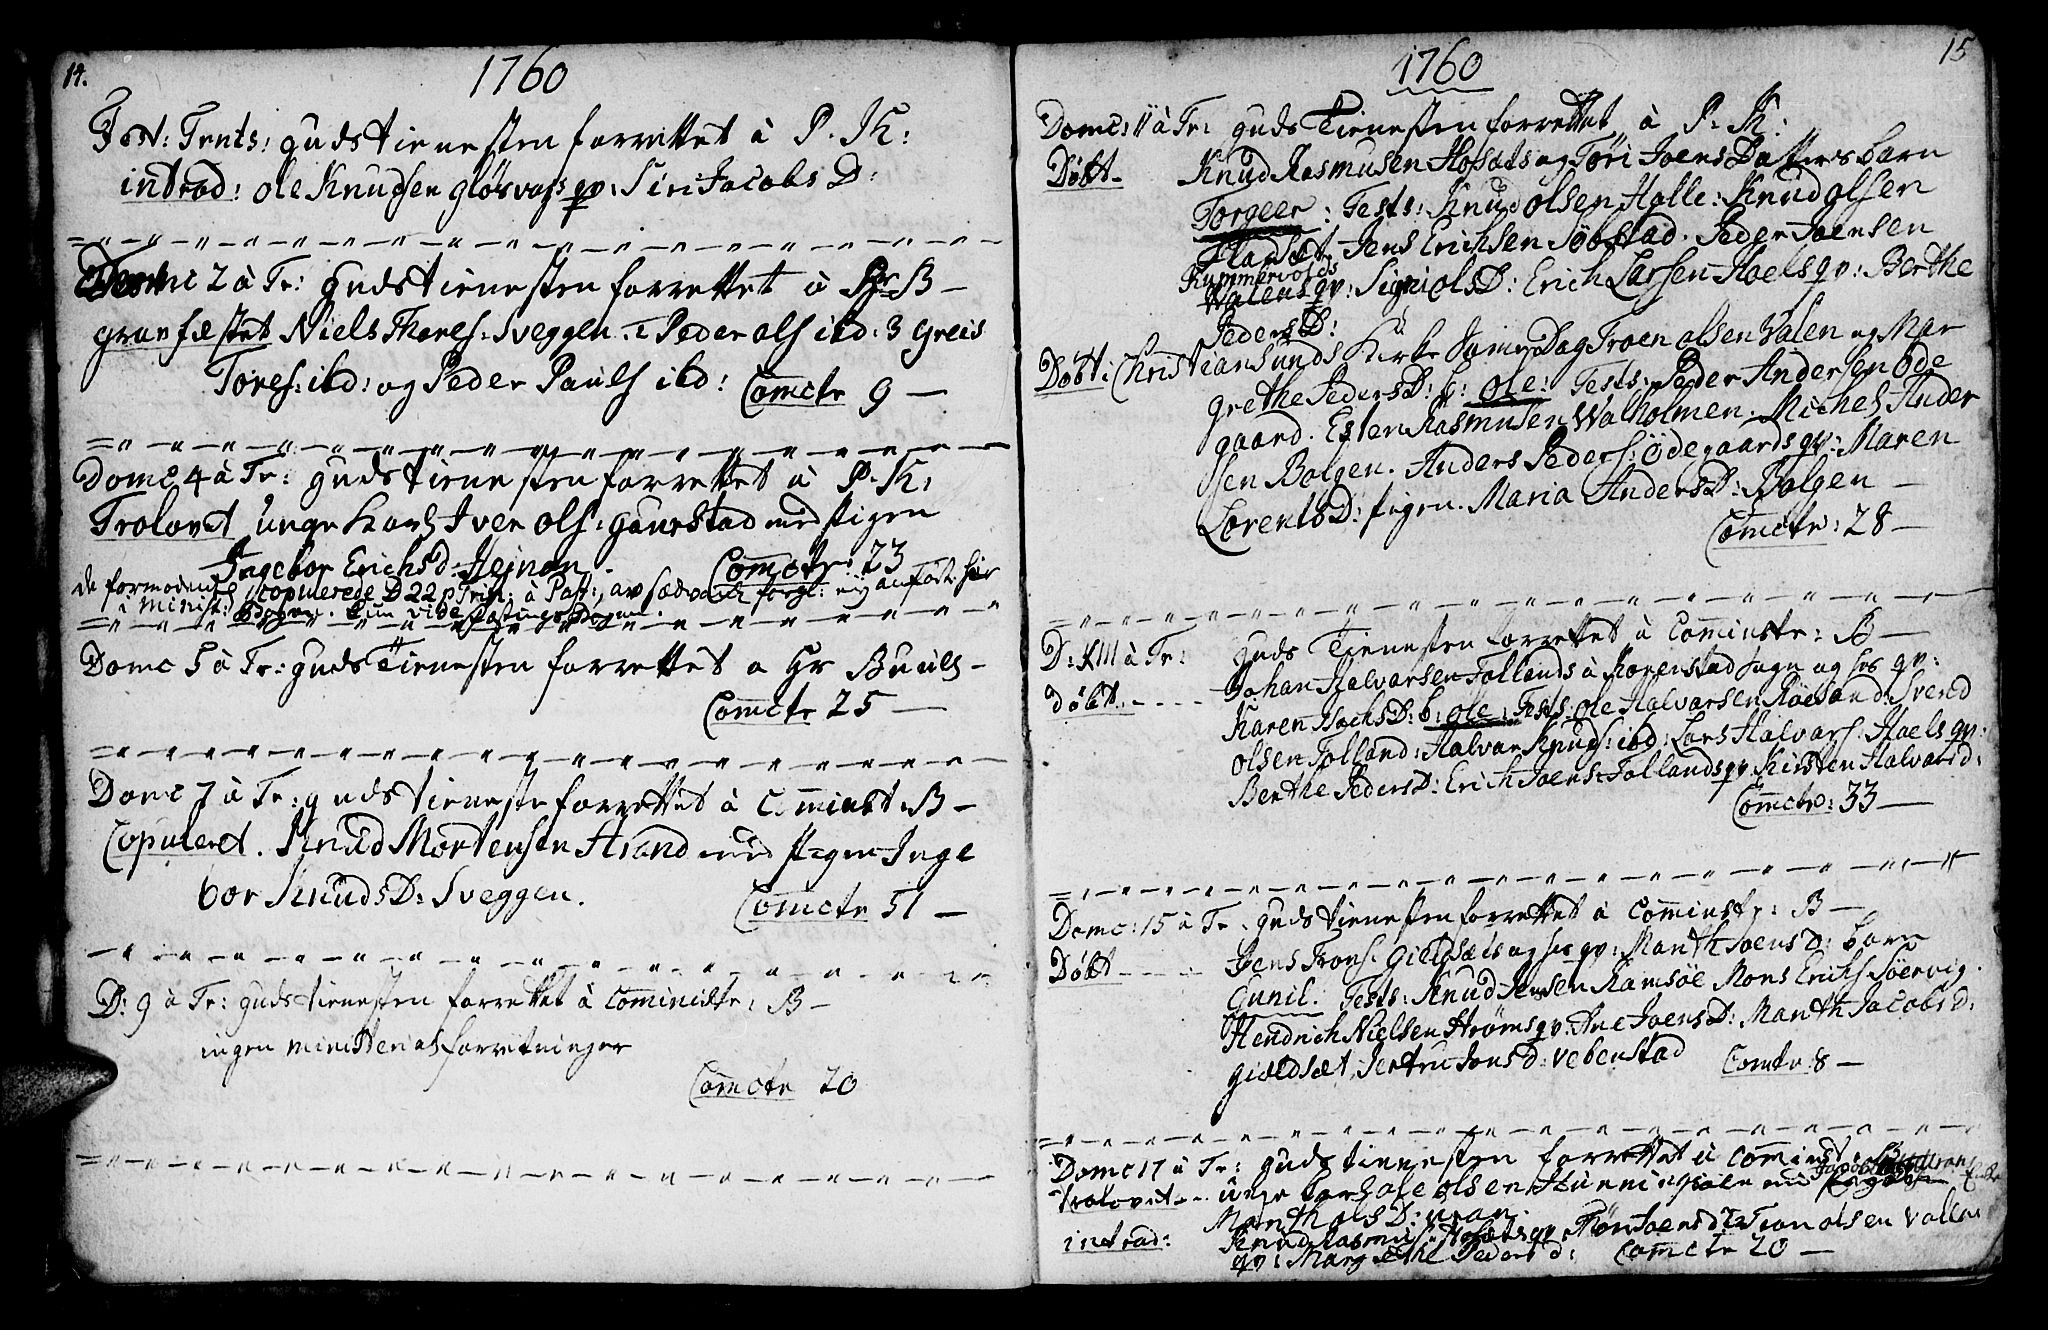 14.
1760
Fest: Trnts: guds tienesten forrettet à P. K:
introd: Ole Knudsen Glösvogs qv: Siri Jacobs D:
Domc 2 à Tr: Guds tienesten forrettet à B-
gravfæstet Niels Thores: Sveggen. Peder ols ibd: 3 Greis
Tores: ibd: og Peder Pauls ibd: Comctr 9 —
Domc 4 à Tr: guds tienesten forrettet à P. K:
Trolovet unge Karl Iver ols: gaurstad med pigen
Ingebor Erichs d: Hejnan. Comctr: 23
de formodentl copulerede D 22 p Trin: à Past:, av
i Minist: Bogen.
Domc 5 à Tr: guds Tienesten forrettet a Hr Buuls-
Comctr 25 —
Domc 7 à Tr: guds tieneste forrettet à Cominist: B —
Copuleret. Knud Mortensen Strand med pigen Inge
bor Knuds D: Sveggen. Comctr 51 —
D: 9 à Tr: guds tienesten forrettet à Cominістr: B —
ingen ministerial forretninger
Comctr 20
1760
15
Domc: 11 à Tr: guds Tienesten forrettet à P. K:
Döbt- Knud Rasmusen Hofsæts og Töri Joens Datters barn
Torgeer: Tests: Knud olsen Halle: Knud olsen
Hardsæt Jens Erichsen Söbstad. Peder Joensen
Rummervolds
Walens qv: Signi ols D: Erich Larsen Hoels qv: Berthe
Peders D:
Döbt: i Christiansunds Kirke Samme Dag Troen olsen Valen og Mar
grethe Peders D: b: ole: Tests: Peder Andersen Öde
gaard. Esten Rasmusen Walholmen. Michel Ander
sen Bolgen. Anders Peders: Ödegaards qv: Maren
Lorents D: pigen. Maria Anders D: Bolgen —
Comctr: 28 —
D: XIII à Tr: guds Tienesten forrettet à Cominstr: B —
döbt. - - - - Johan Halvarsen Follands à Korenstad sogn og hs qv:
Karen Isachs D: b: ole: Tests: ole Halvarsen Röesand: Svend
olsen Folland: Halvar Knuds: ibd: Lars Halvars: Hoels qv:
Berthe Peders D: Erich Joens: Follands qv Kirsten Halvars d:
Comctr: 33 —
Domc: 15 à Tr: guds tienesten forrettet à Cominstr: B —
Döbt - - - - Jens Trons: Gieldsæts og hs qv: Marith Joens D: barn
Gunil. Tests: Knud Jensen Ramsöe Mons Erichs Söervig.
Hendrich Nielsen Ströms qv: Ane Joens D: Marith Jacobs d:
gieldsæt, Jertru Jons d: vebenstad Comtr: 8 —
Domc 17 à Tr: guds tienesten forrettet à Cominst: B
trolovet - - unge Karl ole olsen
Marith ols D:
introd: Knud Rasmus: Hofsæts qv Töri Joens d: Tron olsen Vallens
qv: Margrethe Peders d: Comctr 20 —